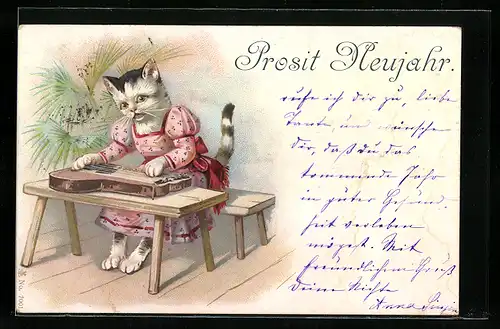 Prosit Neujahr.
rufe ich dir zu, liebe
Tante, und wünsche
dir, daß du das
kommende Jahr
in guter Gesund-
heit verleben
mögest. Mit
freundlichem Gruß
Deine Nichte
Anna
No. 700